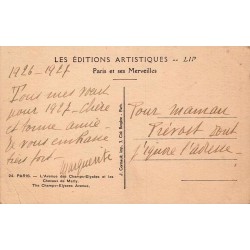 LES ÉDITIONS ARTISTIQUES - LIP
Paris et ses Merveilles
1926-1927
Tous mes vœux
pour 1927 - Chère
et bonne amie
Je vous embrasse
bien fort -
Marguerite
Pour maman
Prévost dont
j'ignore l'adresse
PARIS. - L'Avenue des Champs-Élysées et les
Chevaux de Marly.
The Champs-Elysées Avenue.